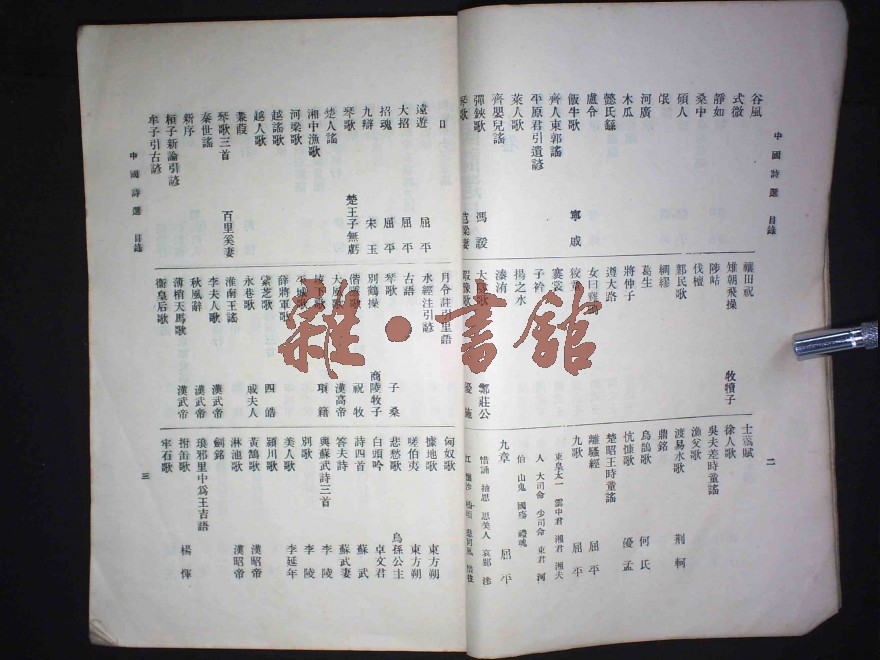 中國詩選 目錄
二
谷風
式微
靜如
桑中
碩人
氓
河廣
木瓜
懿氏繇
盧令
飯牛歌 甯戚
齊人東郭謠
平原君引遺諺
萊人歌
齊嬰兒謠
彈鋏歌 馮諼
琴歌
禳田祝
雉朝飛操 牧犢子
陟岵
伐檀
鄴民歌
綢繆
葛生
將仲子
遵大路
女曰雞鳴
狡童
褰裳
子衿
揚之水
溱洧
鄭莊公
士蔿賦
徐人歌
吳夫差時童謠
漁父歌
渡易水歌 荆軻
鼎銘
烏鵲歌 何氏
忼慷歌 優孟
楚昭王時童謠
離騷經 屈平
九歌 屈平
東皇太一 雲中君 湘君 湘夫
人 大司命 少司命 東君 河
伯 山鬼 國殤 禮魂
九章 屈平
惜誦 抽思 思美人 哀郢 涉
江
遠遊 屈平
大招 屈平
招魂 屈平
九辯 宋玉
琴歌 楚王子無虧
楚人謠
湘中漁歌
河梁歌
越謠歌
越人歌
蒹葭
琴歌三首 百里奚妻
秦世謠
新序
桓子新論引諺
牟子引古諺
月令註引里語
水經注引諺
古語
琴歌 子桑
別鶴操 商陵牧子
祝牧
大風歌 漢高帝
垓下歌 項籍
平城歌
薛將軍歌
紫芝歌 四皓
永巷歌 戚夫人
淮南王謠
李夫人歌 漢武帝
秋風辭 漢武帝
蒲梢天馬歌 漢武帝
衞皇后歌
匈奴歌
據地歌 東方朔
嗟伯夷 東方朔
悲愁歌 烏孫公主
白頭吟 卓文君
詩四首 蘇武
答夫詩 蘇武妻
與蘇武詩三首 李陵
別歌 李陵
美人歌 李延年
潁川歌
黃鵠歌 漢昭帝
淋池歌 漢昭帝
劍銘
瑯邪里中爲王吉語
拊缶歌 楊惲
牢石歌
中國詩選 目錄
三
雜·書館